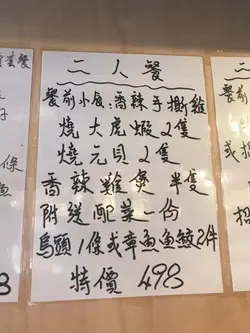 二人餐
餐前小食:香辣手撕雞
燒大虎蝦2隻
燒元貝2隻
香辣雞煲 半隻
附送配菜一份
烏頭1條或章魚魚鮫2件
特價 498
條